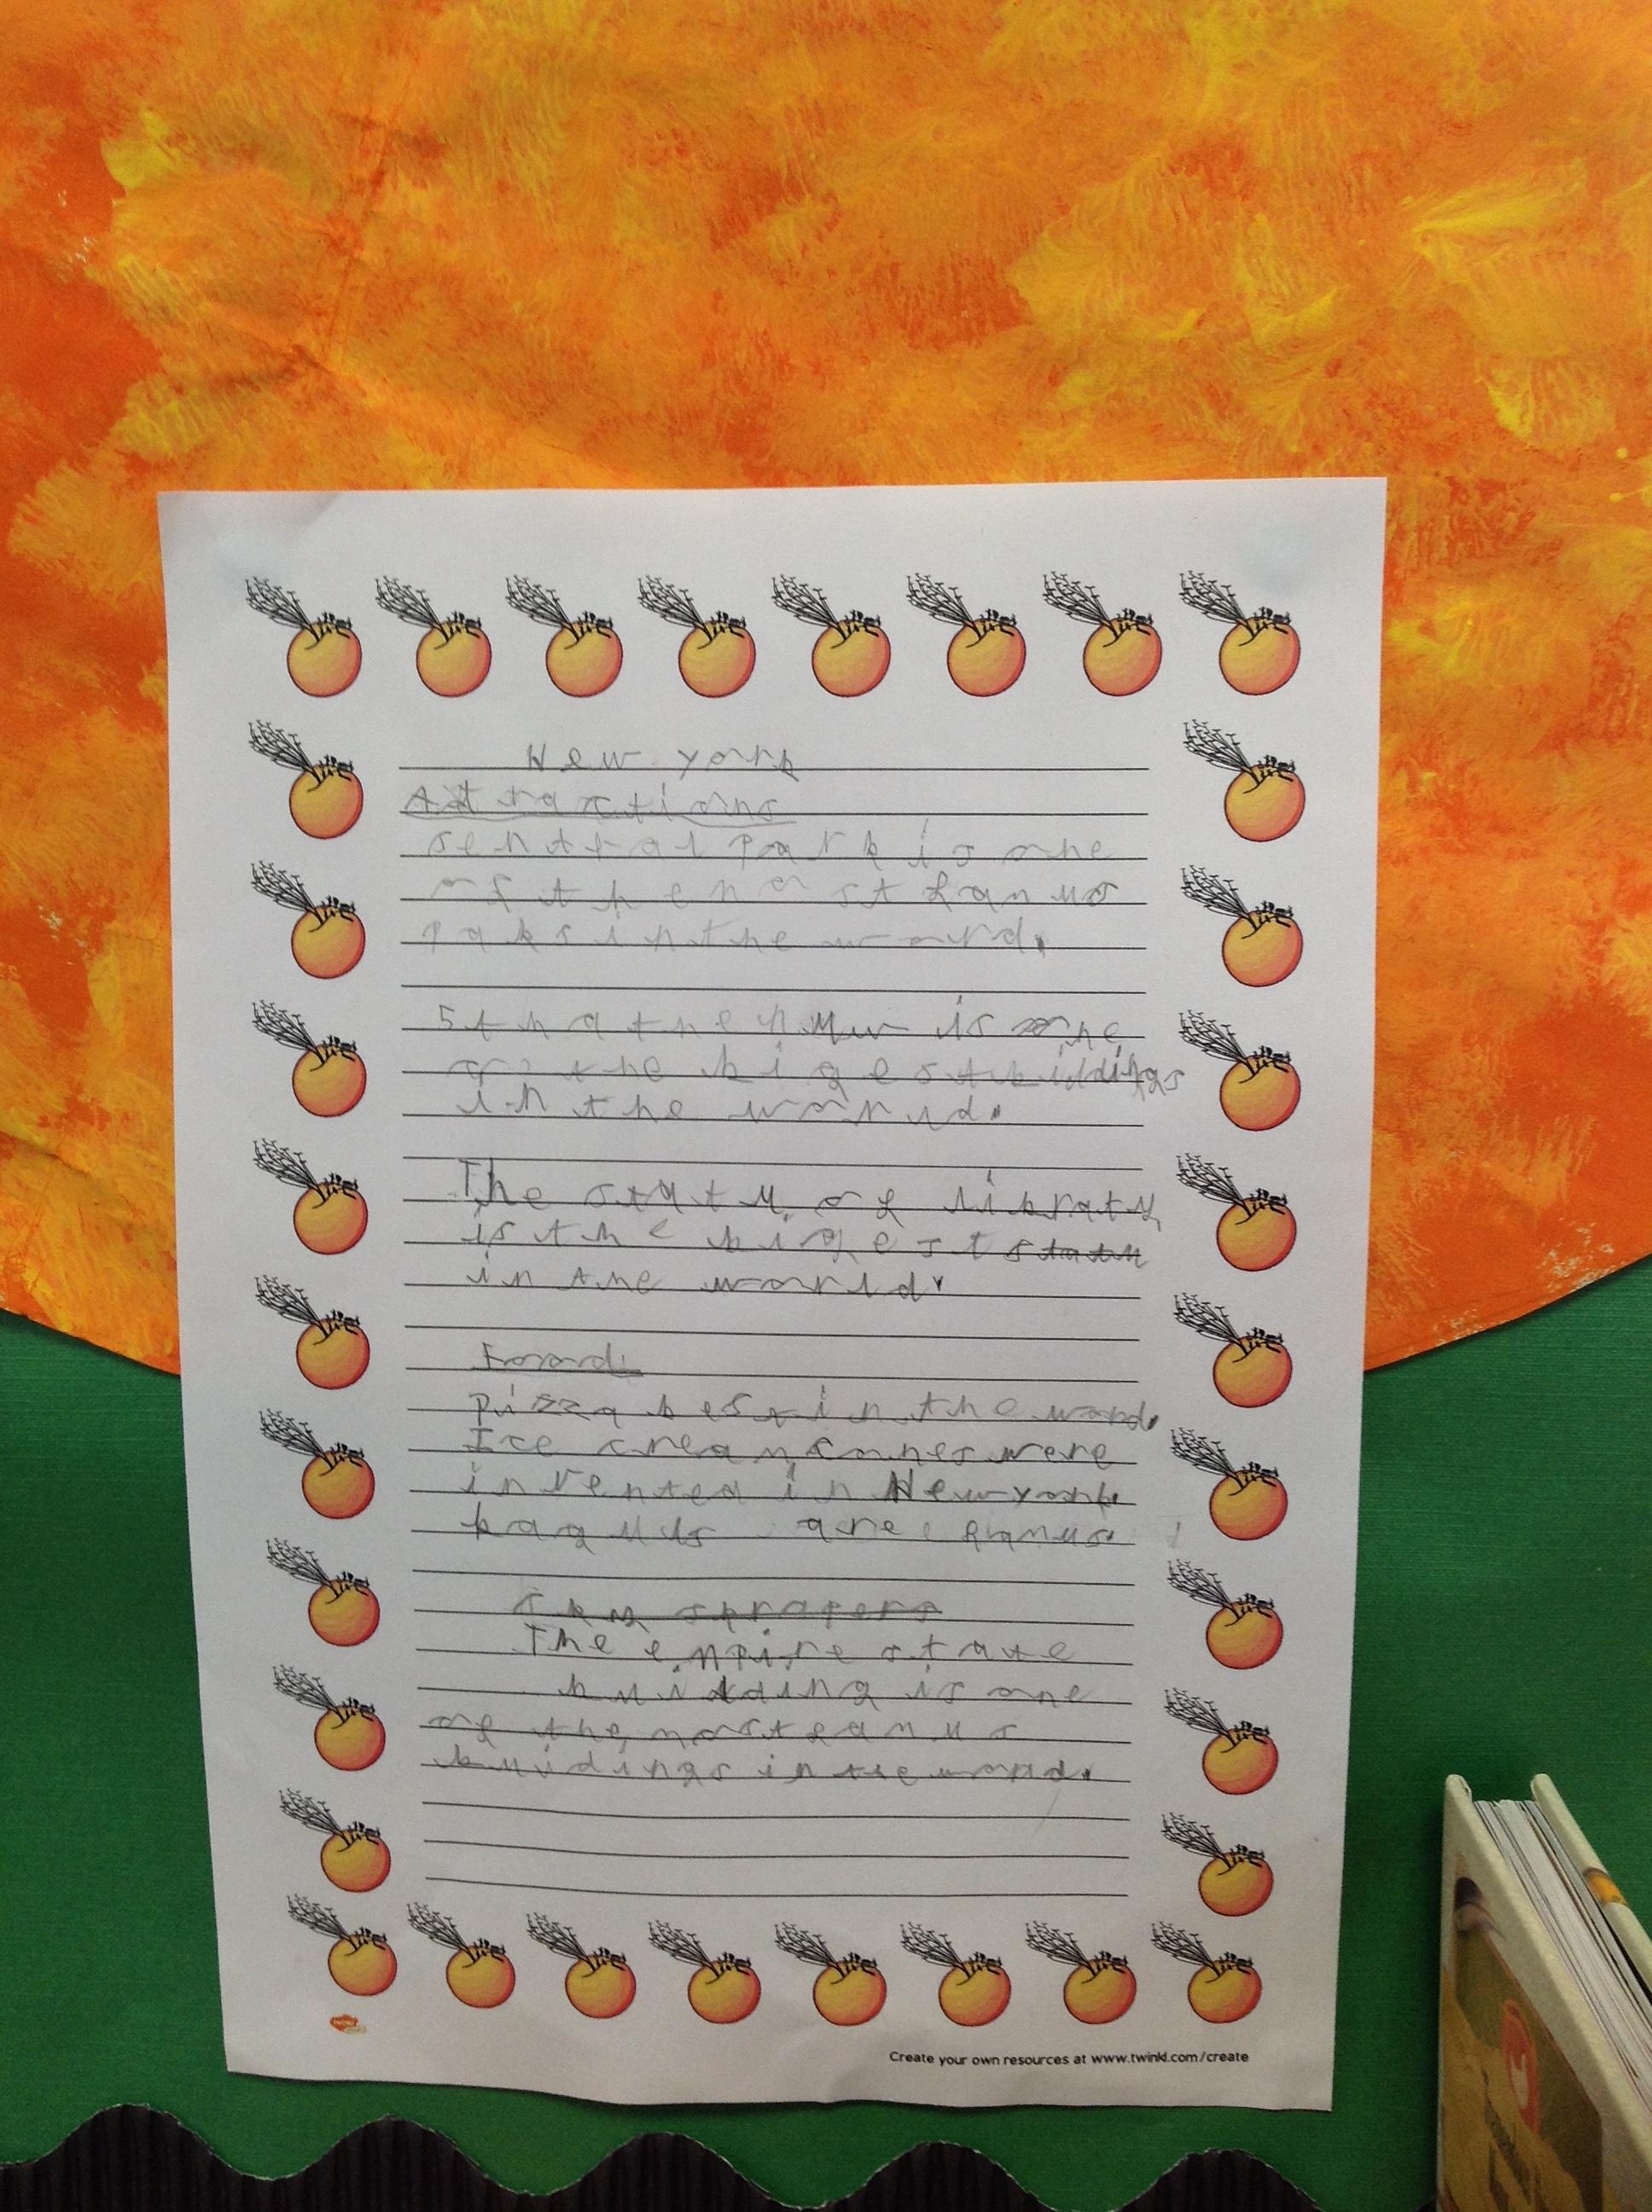 New york
Attractions
sentral Park is one
of the most famus
paks in the word.
5th athenuw is one
of the bigest biddings
in the worud.
The statu of libraty
is the bigest statu
in the world.
Food
pizza best in the word.
Ice cream cones were
invented in New york.
baguls are famus.
sky scrapers
The empire state
buidding is one
of the most famus
buidings in the world.
Create your own resources at www.twinkl.com/create